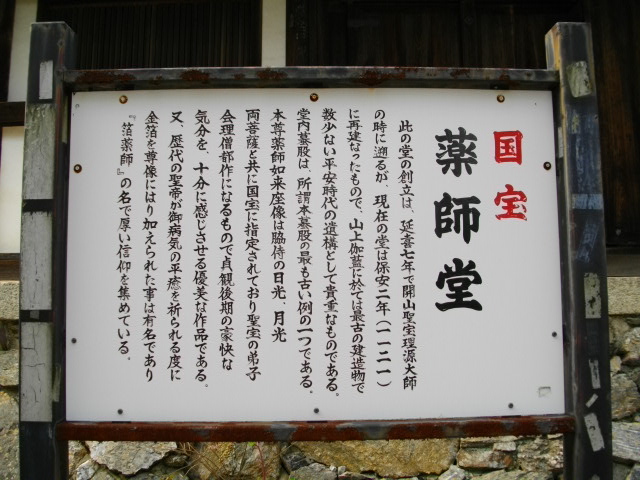 国宝
薬師堂
此の堂の創立は、延喜七年で開山聖宝理源大師
の時に遡るが、現在の堂は保安二年(一一二一)
に再建なったもので、山上伽藍に於ては最古の建造物で
数少ない平安時代の遺構として貴重なものである。
堂内蟇股は、所謂本蟇股の最も古い例の一つである。
本尊薬師如来座像は脇侍の日光、月光
両菩薩と共に国宝に指定されており聖宝の弟子
会理僧都作になるもので貞観後期の豪快な
気分を、十分に感じさせる優美な作品である。
又、歴代の聖帝が御病気の平癒を祈られる度に
金箔を尊像にはり加えられた事は有名であり
『箔薬師』の名で厚い信仰を集めている。